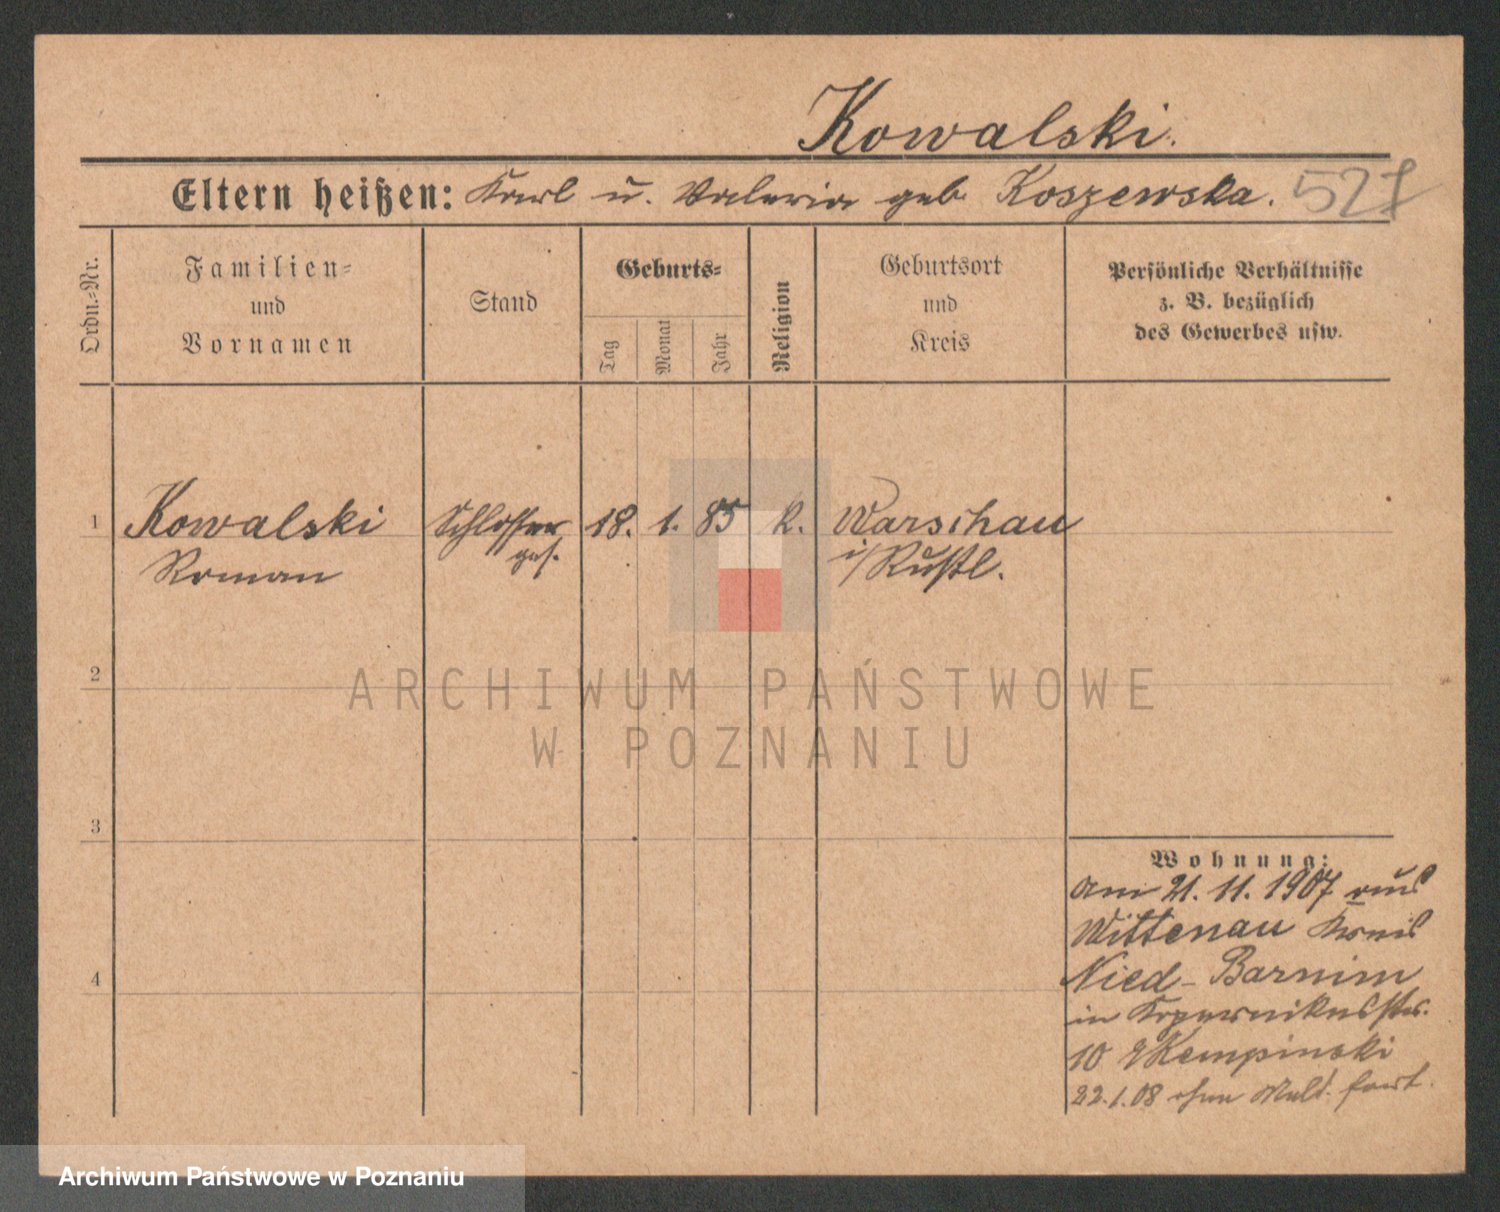 Kowalski.
Eltern heißen: Karl u. Valeria geb. Koszewska. 527
Ordn.-Nr.
Familien-
und
Vornamen
Stand
Geburts-
Tag
Monat
Jahr
Religion
Geburtsort
und
Kreis
Persönliche Verhältnisse
z. B. bezüglich
des Gewerbes usw.
1 Kowalski Schlosser 18. 1. 85 k. Warschau
Roman ges. i/Rußl.
2
ARCHIWUM PAŃSTWOWE
W POZNANIU
3
Wohnung:
am 21.11.1907 aus
Wittenau Kreis
4
Nied-Barnim
in Kopernikusstr.
10 Kempinski
22.1.08 ohne Meld. fort.
Archiwum Państwowe w Poznaniu